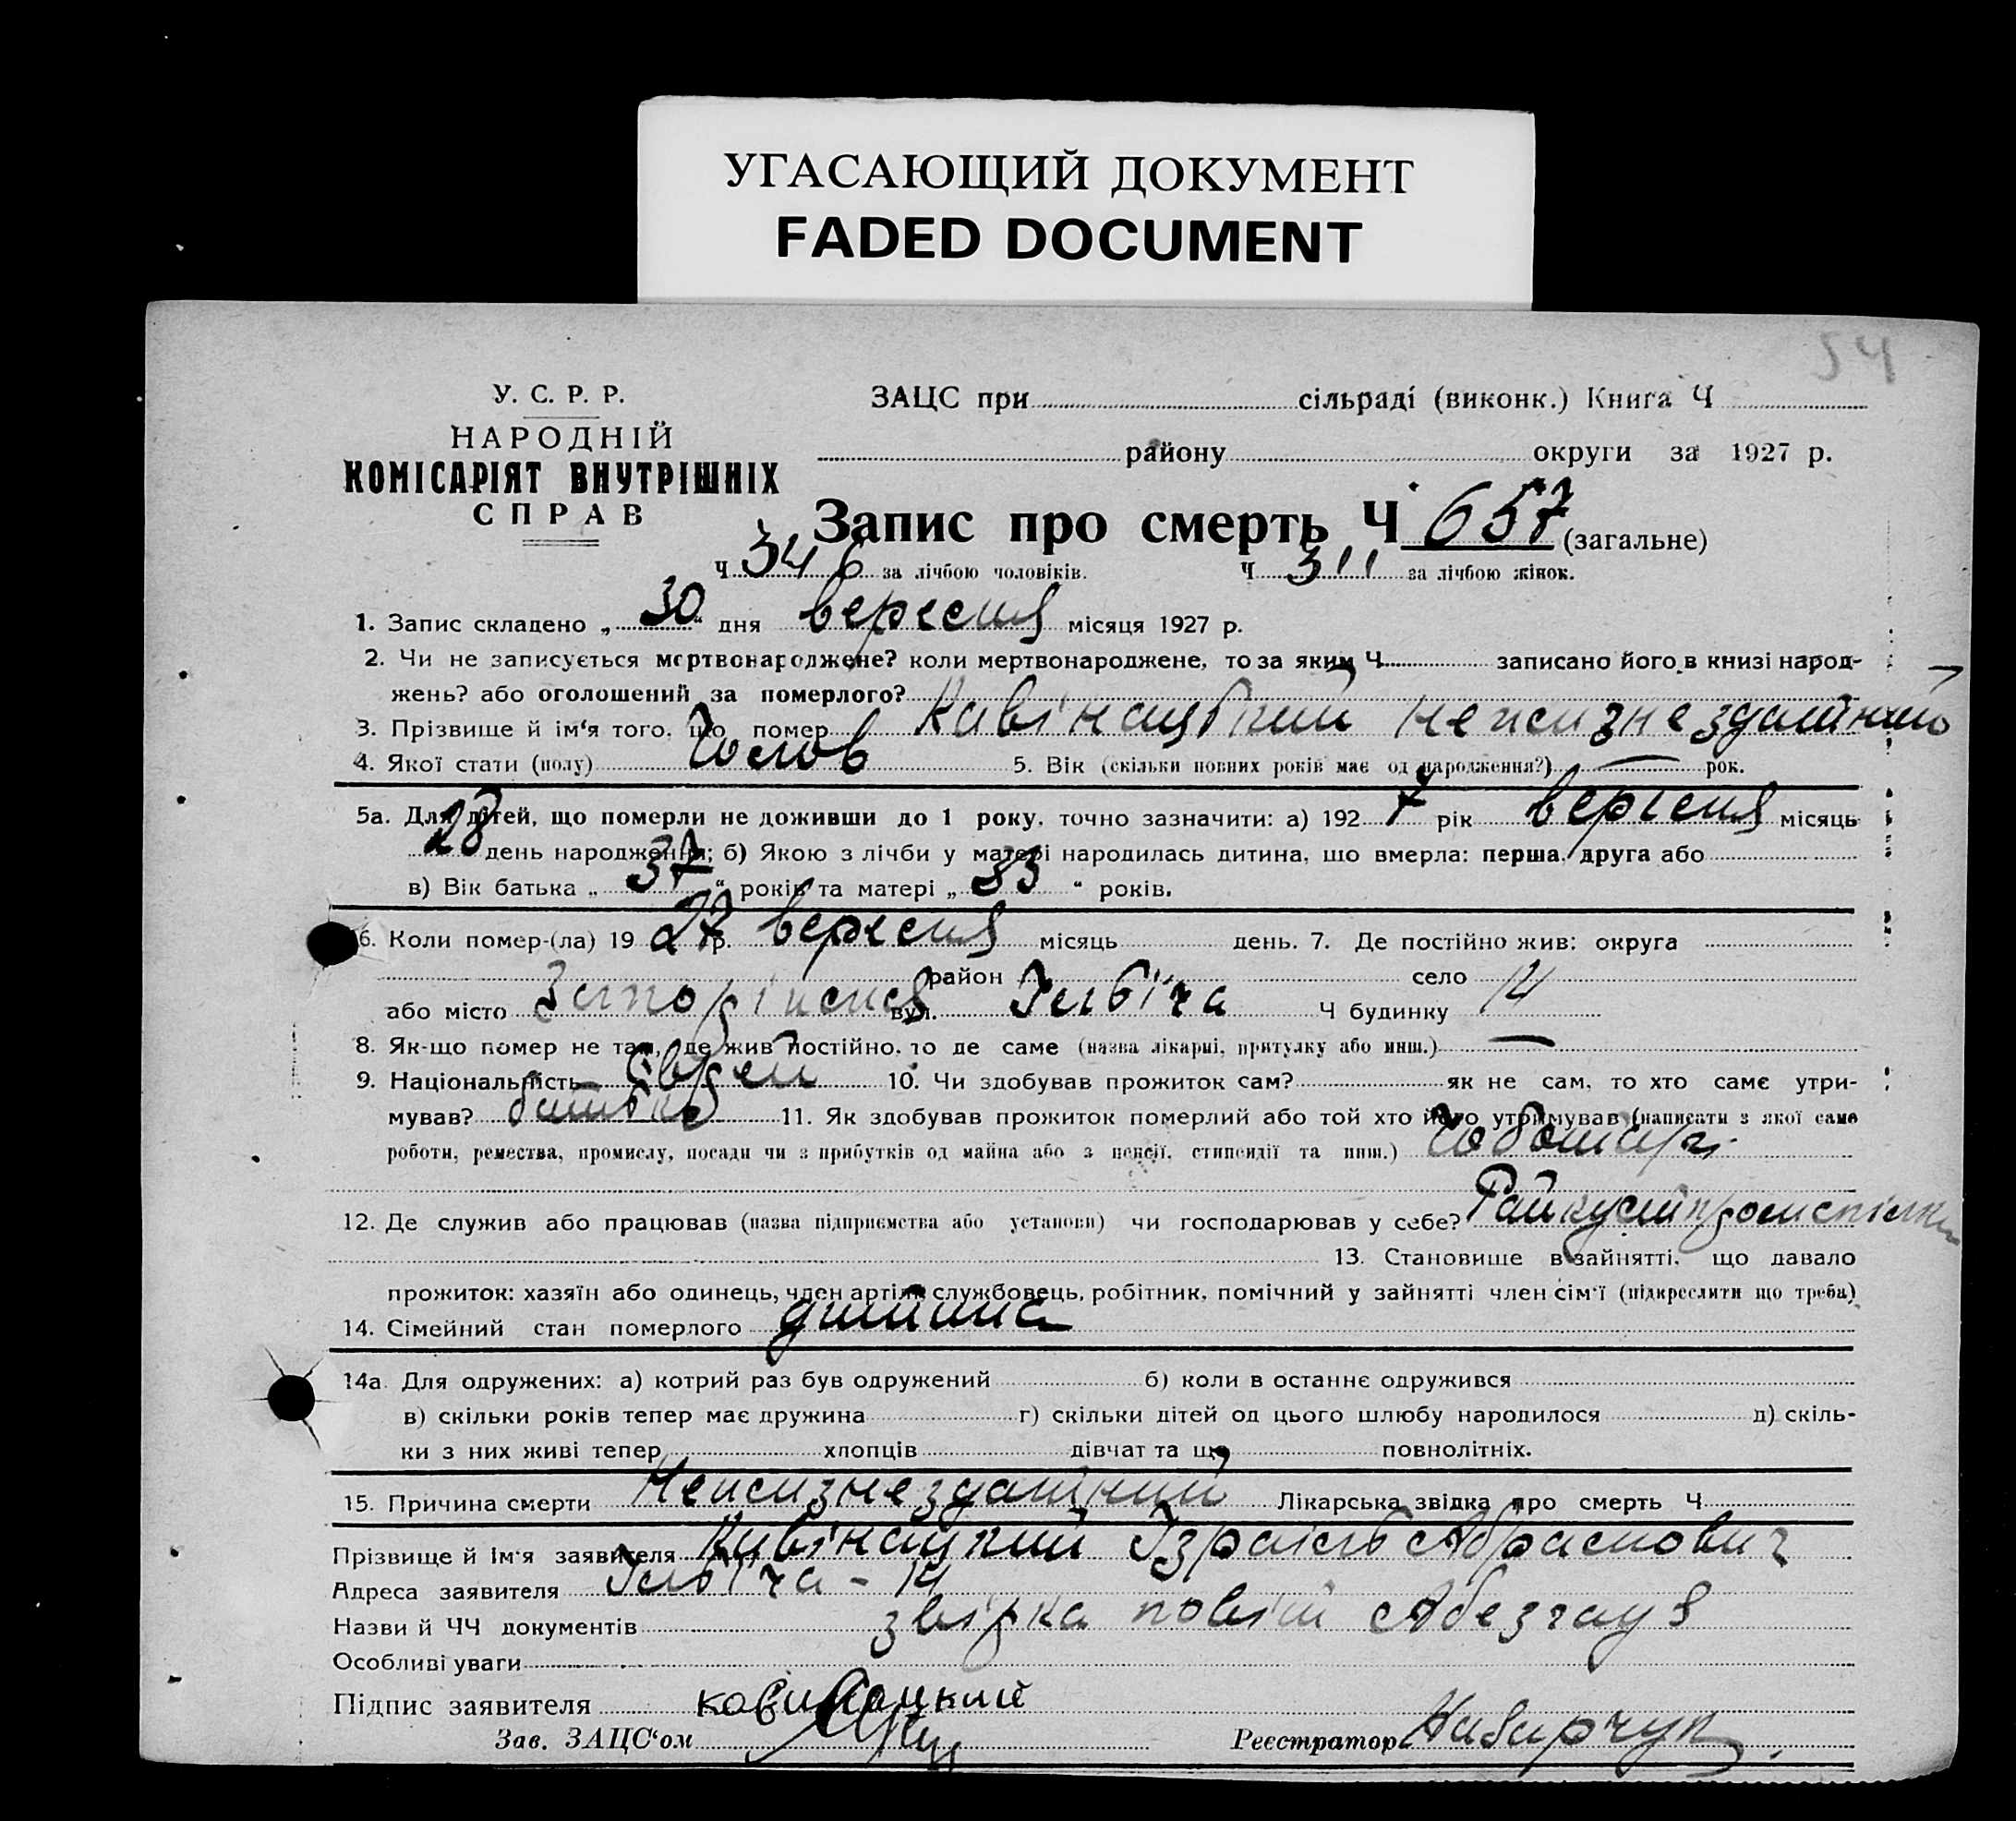 УГАСАЮЩИЙ ДОКУМЕНТ
FADED DOCUMENT
54
У. С. Р. Р.
НАРОДНІЙ
КОМІСАРІЯТ ВНУТРІШНІХ
СПРАВ
ЗАЦС при сільраді (виконк.) Книга Ч
району округи за 1927 р.
Запис про смерть Ч 657 (загальне)
Ч 346 за лічбою чоловіків. Ч 311 за лічбою жінок.
1. Запис складено „30“ дня вересня місяця 1927 р.
2. Чи не записується мертвонароджене? коли мертвонароджене, то за яким Ч. записано його в книзі народ-
жень? або оголошений за померлого?
3. Прізвище й ім‘я того, що помер Кавінацький
4. Якої стати (полу) Чолов 5. Вік (скільки повних років має од народження?) — рок.
5а. Для дітей, що померли не доживши до 1 року, точно зазначити: а) 1927 рік вересня місяць
28 день народження; б) Якою з лічби у матері народилась дитина, що вмерла: перша, друга або
в) Вік батька „37“ років та матері „33“ років.
6. Коли помер-(ла) 1927р. вересня місяць день. 7. Де постійно жив: округа
район село
або місто вул. Ілліча Ч будинку 14
8. Як-що помер не там, де жив постійно, то де саме (назва лікарні, притулку або инш.) —
9. Національність Єврей 10. Чи здобував прожиток сам? як не сам, то хто саме утри-
мував? батько 11. Як здобував прожиток померлий або той хто його утримував (написати з якої саме
роботи, ремества, промислу, посади чи з прибутків од майна або з пенсії, стипендії та инш.) Чоботарь
12. Де служив або працював (назва підприємства або установи) чи господарював у себе? Райкустпромспілки
13. Становище в зайнятті, що давало
прожиток: хазяїн або одинець, член артілі, службовець, робітник, помічний у зайнятті член сім‘ї (підкреслити що треба)
14. Сімейний стан померлого дитина
14а. Для одружених: а) котрий раз був одружений б) коли в останнє одружився
в) скільки років тепер має дружина г) скільки дітей од цього шлюбу народилося д) скіль-
ки з них живі тепер хлопців дівчат та ще повнолітніх.
15. Причина смерти Лікарська звідка про смерть Ч
Прізвище й Ім‘я заявителя Кавінацький Ізраіль Абрамович
Адреса заявителя Ілліча - 14
Назви й ЧЧ документів
Особливі уваги
Підпис заявителя Кавинацкий
Зав. ЗАЦС‘ом Реєстратор